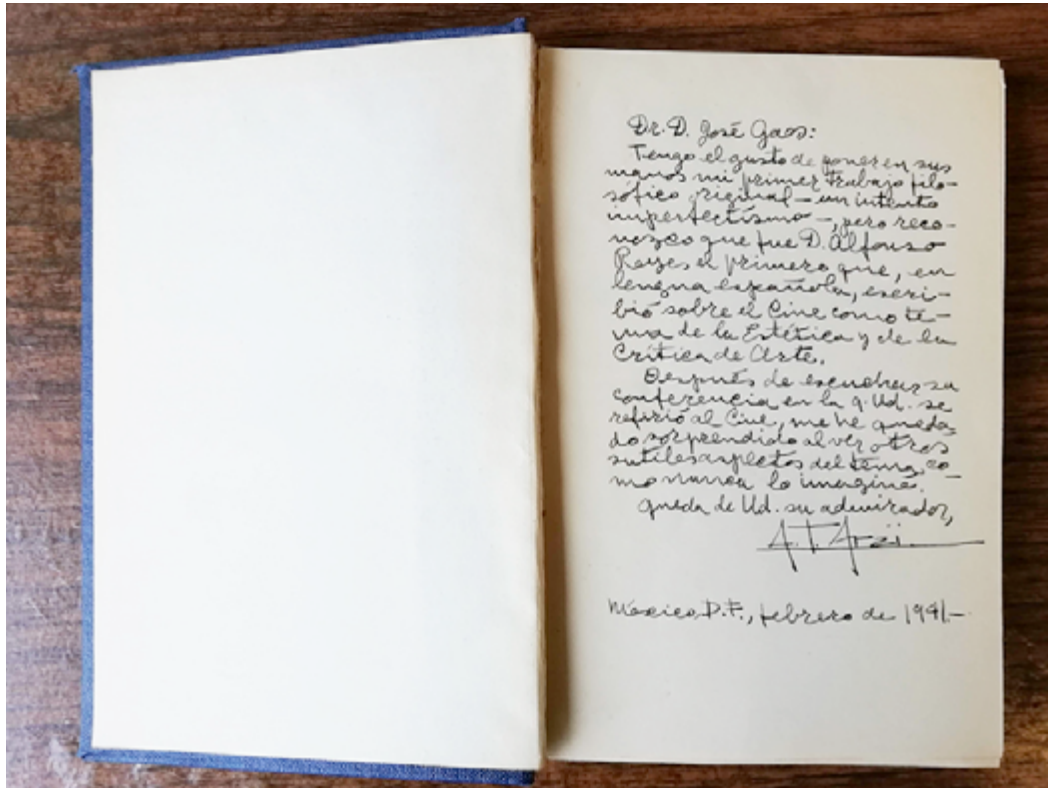 Dr. D. José Gaos:
Tengo el gusto de poner en sus
manos mi primer trabajo filo-
sófico original – un intento
imperfectísimo –, pero reco-
nozco que fue D. Alfonso
Reyes el primero que, en
lengua española, escri-
bió sobre el Cine como te-
ma de la Estética y de la
Crítica de Arte.
Después de escuchar su
conferencia en la q. Ud. se
refirió al Cine, me he queda-
do sorprendido al ver otros
sutiles aspectos del tema, co-
mo nunca lo imaginé.
Queda de Ud. su admirador,
A. T. Arzi
México D.F., febrero de 1941.–